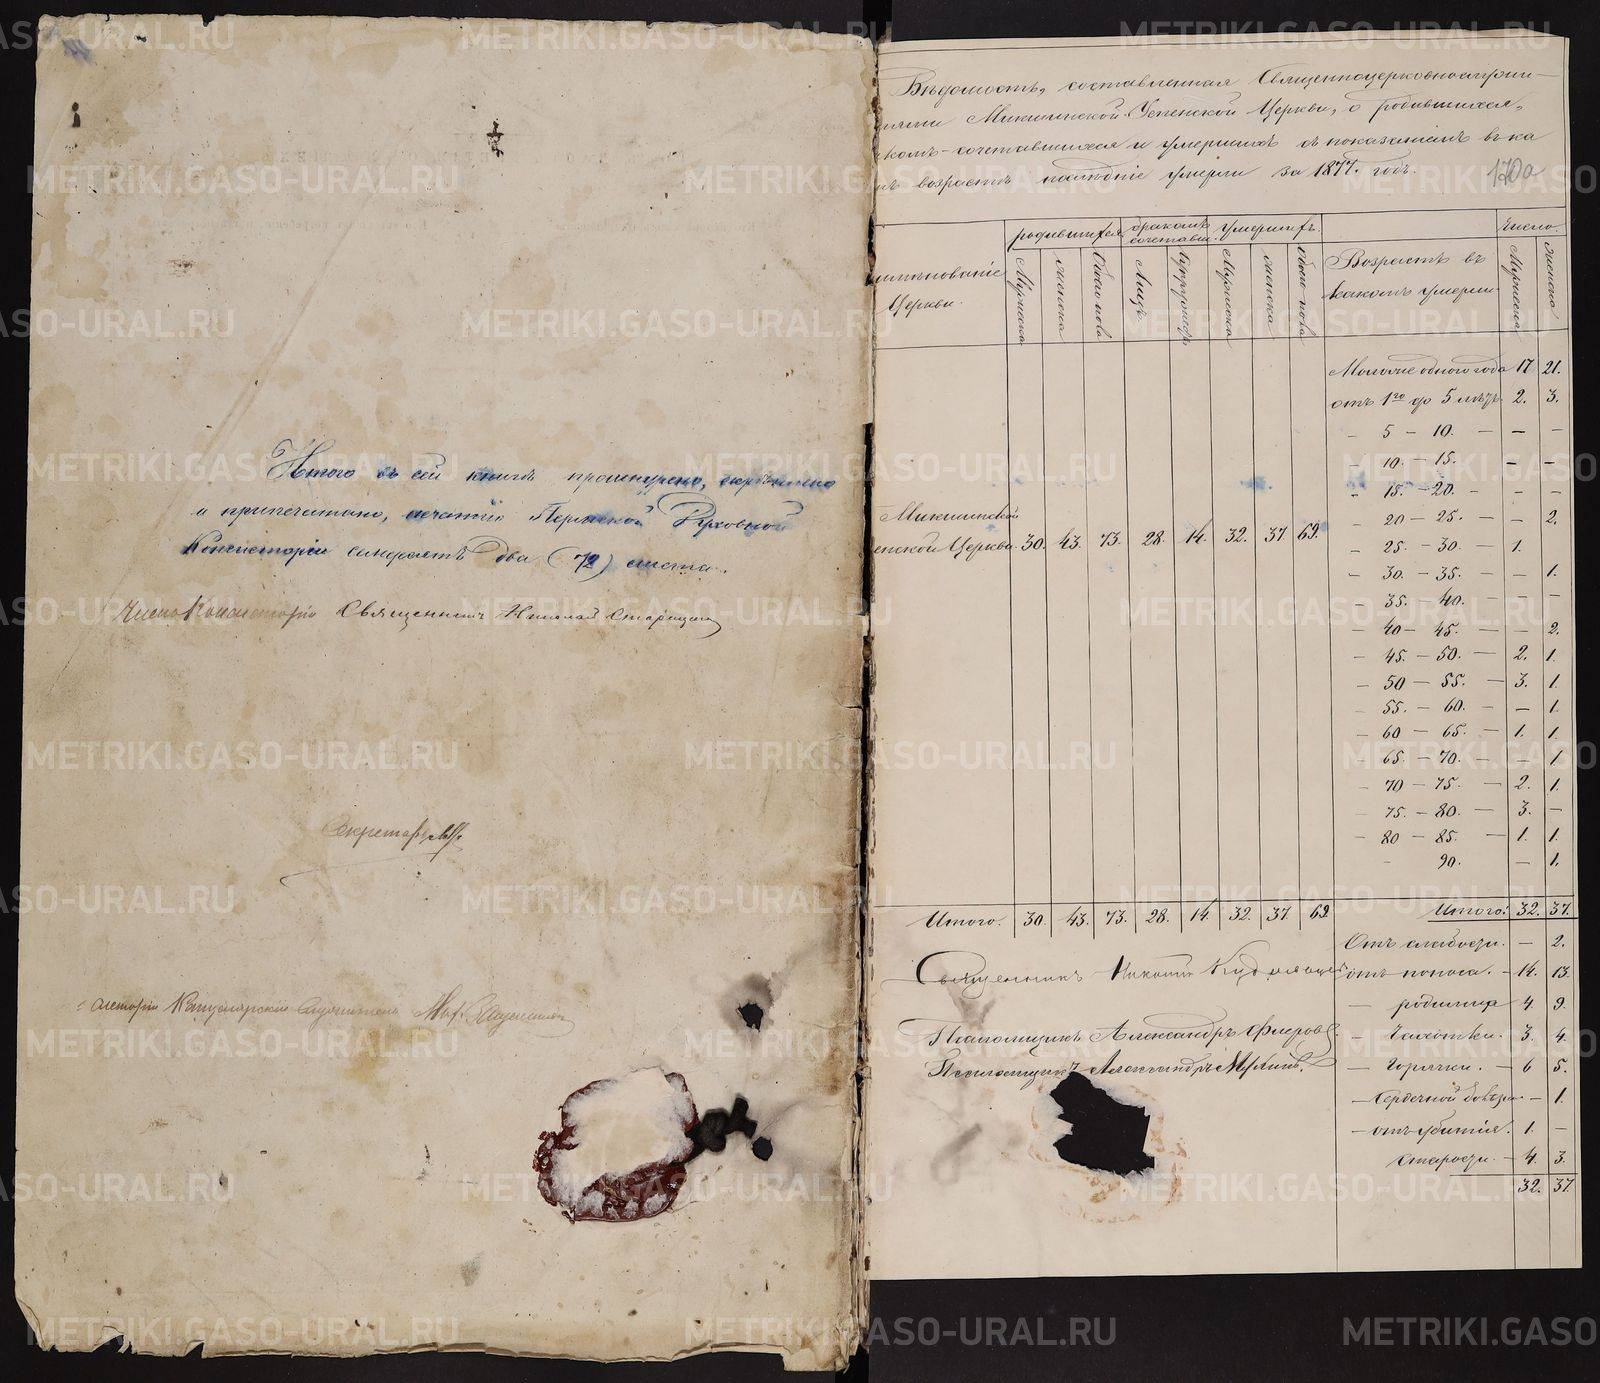 Итого въ сей книгѣ прошнуровано, скрѣплено
и припечатано, печатью Пермской Духовной
Консисторіи семьдесятъ два (72) листа.
Членъ Консисторіи Священникъ Николай
Секретарь
Канцелярскій Служитель
Вѣдомость, составленная Священноцерковнослужи-
Микшинской Успенской Церкви, о родившихся,
комъ-сочетавшихся и умершихъ съ показаніемъ въ ка
возрастѣ послѣдніе умерли за 1877. годъ.
170а
родившихся. бракомъ сочетавш. умершихъ. Число.
именованіе Церкви. Мужеска женска Обоего пола Лицъ Супружествъ Мужеска женска Обоего пола Возрастъ въ какомъ умерли Мужеска Женска
Моложе одного года 17 21.
отъ 1го до 5 лѣтъ. 2. 3.
- 5 - 10. - - -
- 10. - 15. - - -
- 15. - 20. - - -
- 20 - 25. - - 2.
- 25. - 30 - 1.
- 30. - 35. - - 1.
35. 40. - - -
- 40 - 45. - - 2.
- 45. - 50. - 2. 1.
- 50 - 55. - 3. 1.
- 55. - 60. - - 1.
- 60 - 65. - 1. 1.
- 65. - 70. - - 1
- 70 - 75. - 2. 1.
- 75. - 80. - 3. -
- 80 - 85. - 1. 1.
- 90. - 1.
Микшинской
Церкви. 30. 43. 73. 28. 14. 32. 37. 69.
Итого. 30. 43. 73. 28. 14. 32. 37. 69
Итого: 32. 37.
Отъ слабости. - 2.
отъ поноса. - 14. 13.
- родимца 4. 9.
- Чахотки. 3. 4.
- Горячки. - 6 5.
- Сердечной болѣзни - 1.
- отъ убитія. 1. -
Старости. - 4. 3.
32. 37.
Священникъ
Псаломщикъ Александръ Флеровъ.
Псаломщикъ Александръ
METRIKI.GASO-URAL.RU